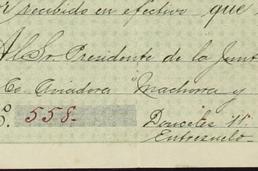 recibido en efectivo que
Al Sr. Presidente de la Junt
Co. Aviadora Machorra y
º. 558-
Donceles
Entresuelo